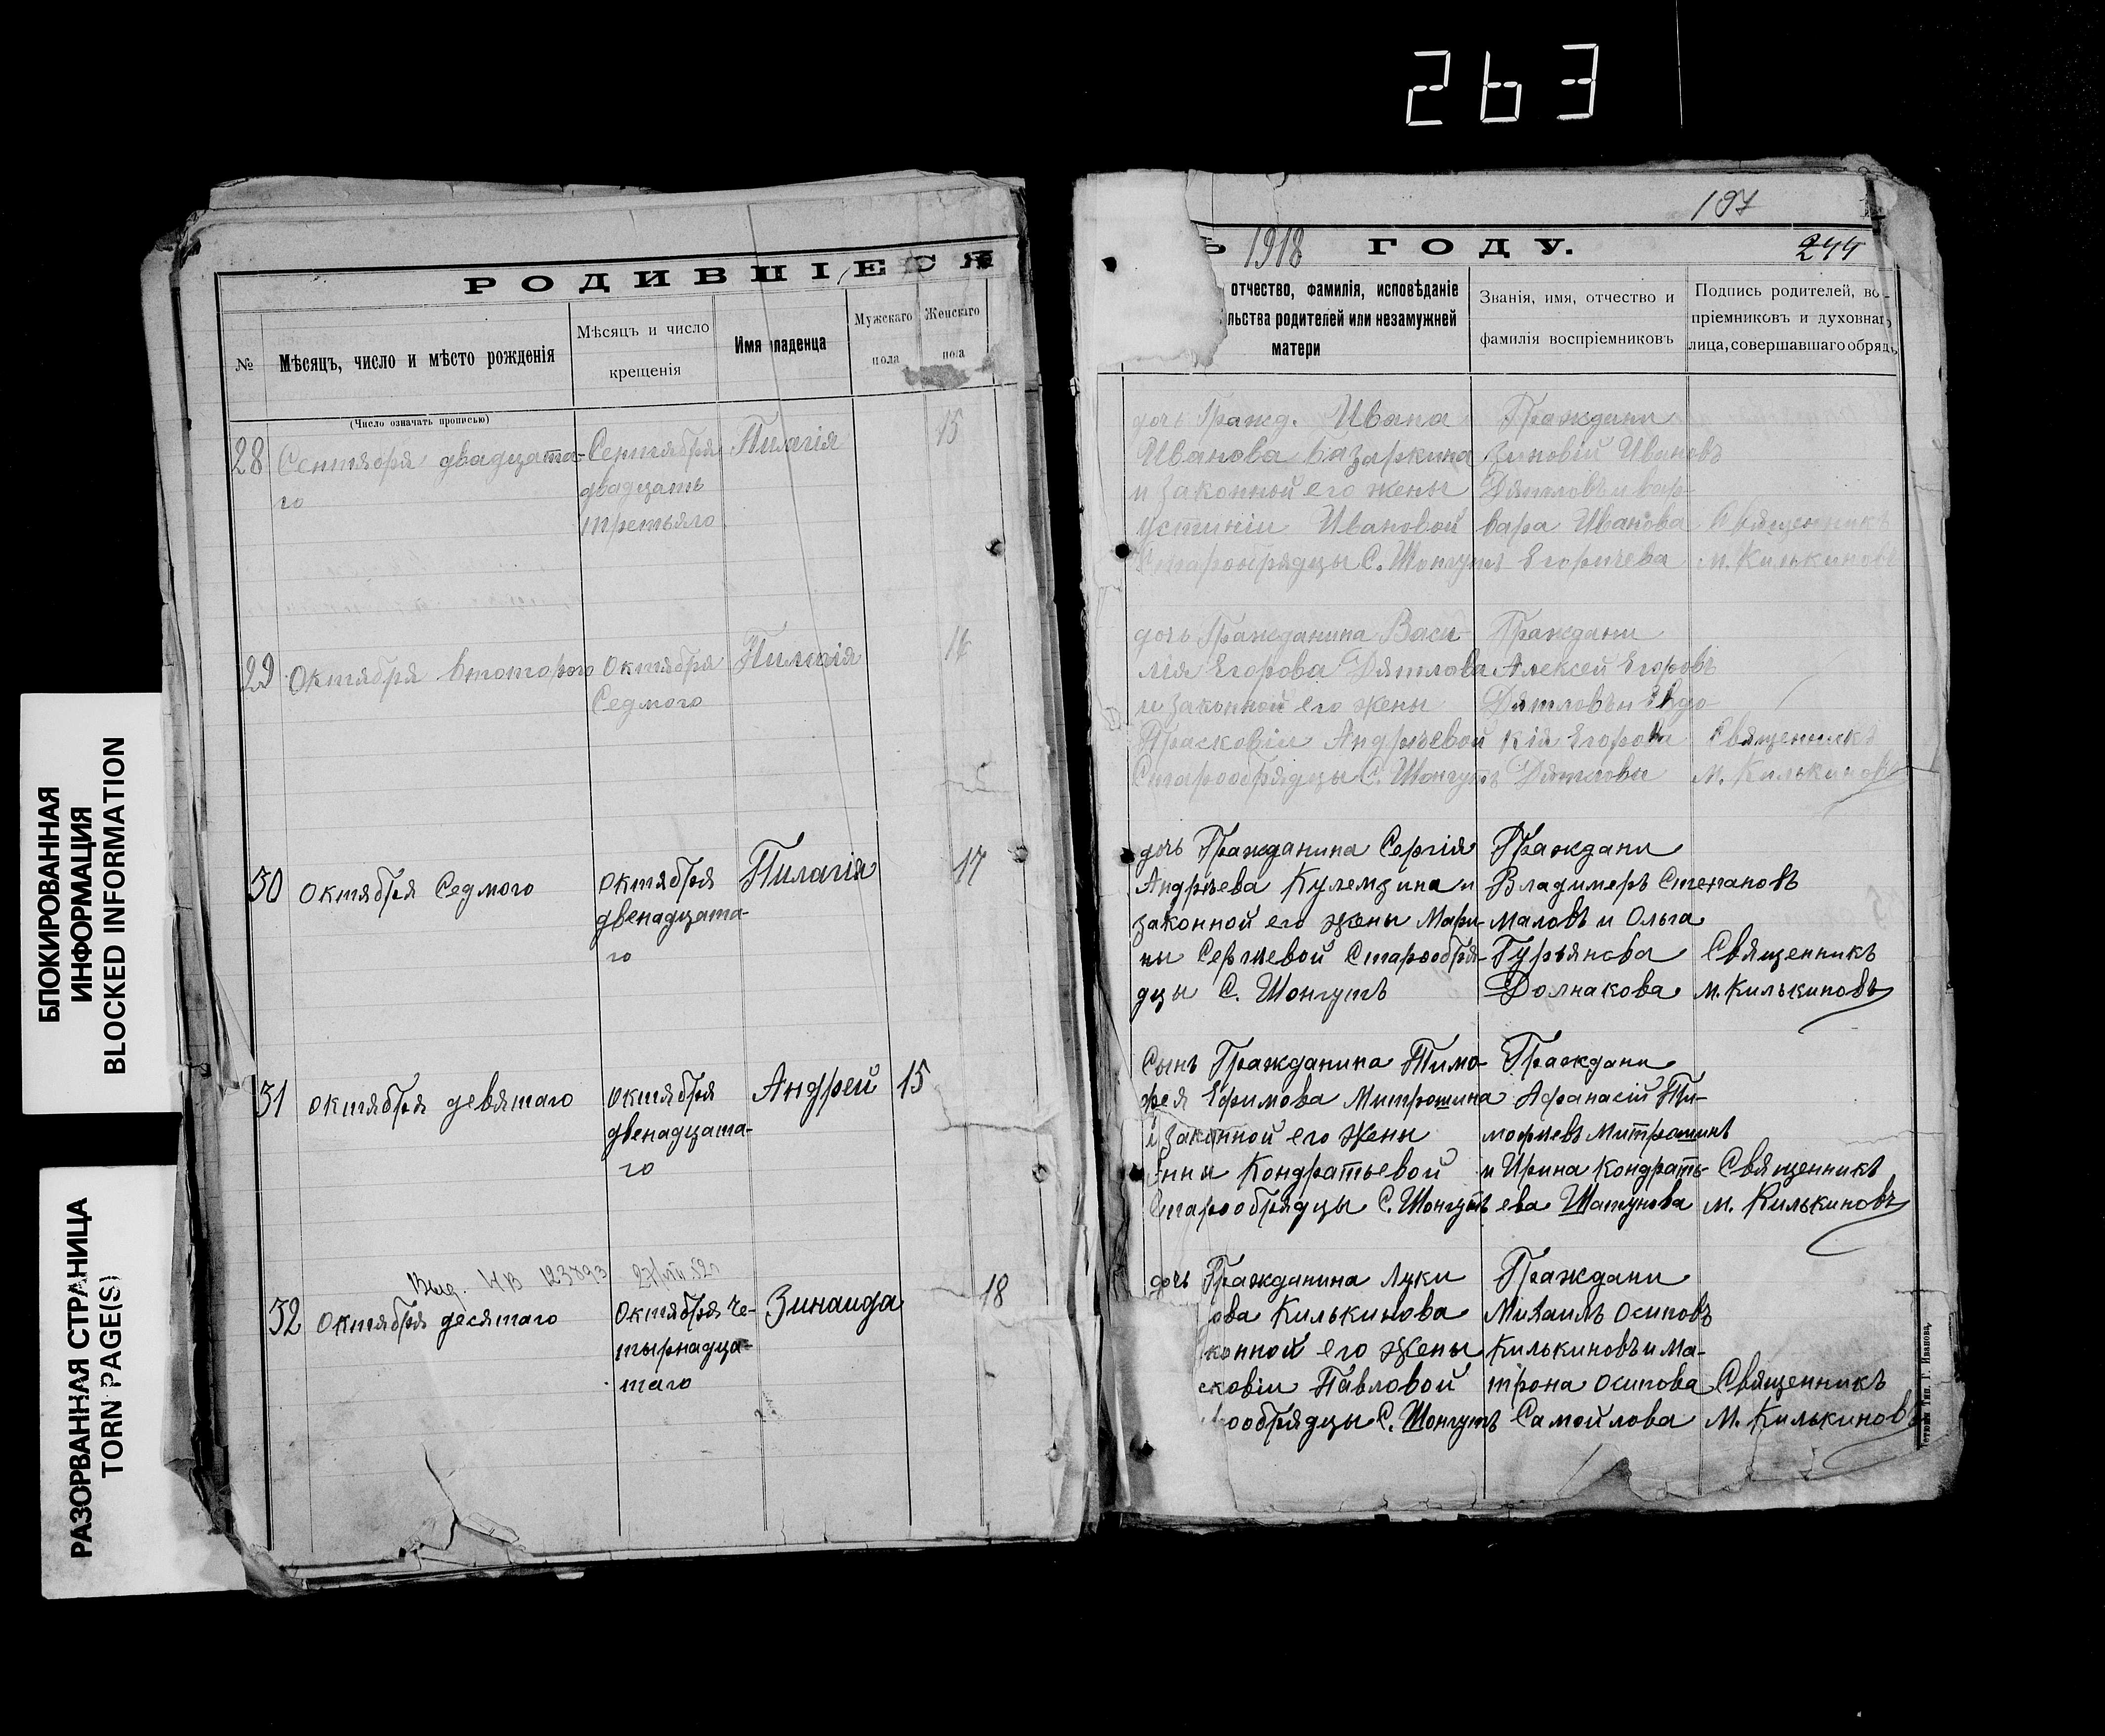 263
197
РОДИВШІЕСЯ
Ъ 1918 ГОДУ.
244
№
Мѣсяцъ, число и мѣсто рожденія
(Число означать прописью)
Мѣсяцъ и число
крещенія
Имя младенца
Мужскаго
пола
Женскаго
пола
отчество, фамилія, исповѣданіе
льства родителей или незамужней
матери
Званія, имя, отчество и
фамилія воспріемниковъ
Подпись родителей, во-
пріемниковъ и духовнаго
лица, совершавшаго обрядъ
28
Сентября двадцата-
го
Сентября
двадцать
третьяго
Пилагія
15
дочь Гражд. Ивана
Иванова Базаркина
и законной его жены
Устиніи Ивановой
Старообрядцы С. Шонгутъ
Граждани
Зиновій Ивановъ
Дятловъ и Вар-
вара Иванова
Егоричева
Священникъ
м. Килькиновъ
29
Октября втоторого
Октября
Седмого
Пилагія
16
дочь Гражданина Васи-
лія Егорова Дятлова
и законной его жены
Прасковіи Андрѣевой
Старообрядцы С. Шонгутъ
Граждани
Алексей Егоровъ
Дятловъ и Евдо-
кія Егорова
Дятловы
Священникъ
м. Килькиновъ
30
Октября Седмого
Октября
двенадцата-
го
Пилагія
17
дочь Гражданина Сергія
Андрѣева Кулемзина и
законной его жены Мари-
ны Сергѣевой Старообря-
дцы С. Шонгутъ
Граждани
Владимеръ Степановъ
Маловъ и Ольга
Гурьянова
Долнакова
Священникъ
м. Килькиновъ
31
Октября девятаго
Октября
двенадцата-
го
Андрей
15
Сынъ Гражданина Тимо-
фея Ефимова Митрошина
и законной его жены
Анны Кондратьевой
Старообрядцы С. Шонгутъ
Граждани
Афанасій Ти-
мофѣевъ Митрошинъ
и Ирина Кондрать-
ева Шатунова
Священникъ
м. Килькиновъ
Выд. 123893
32
Октября десятаго
Октября че-
тырнадца-
таго
Зинаида
18
дочь Гражданина Луки
ова Килькинова
конной его жены
сковіи Павловой
рообрядцы С. Шонгутъ
Граждани
Михаилъ Осиповъ
Килькиновъ и Ма-
трона Осипова
Самойлова
Священникъ
М. Килькиновъ
Тип. Г. Иванова,
БЛОКИРОВАННАЯ
ИНФОРМАЦИЯ
BLOCKED INFORMATION
РАЗОРВАННАЯ СТРАНИЦА
TORN PAGE(S)